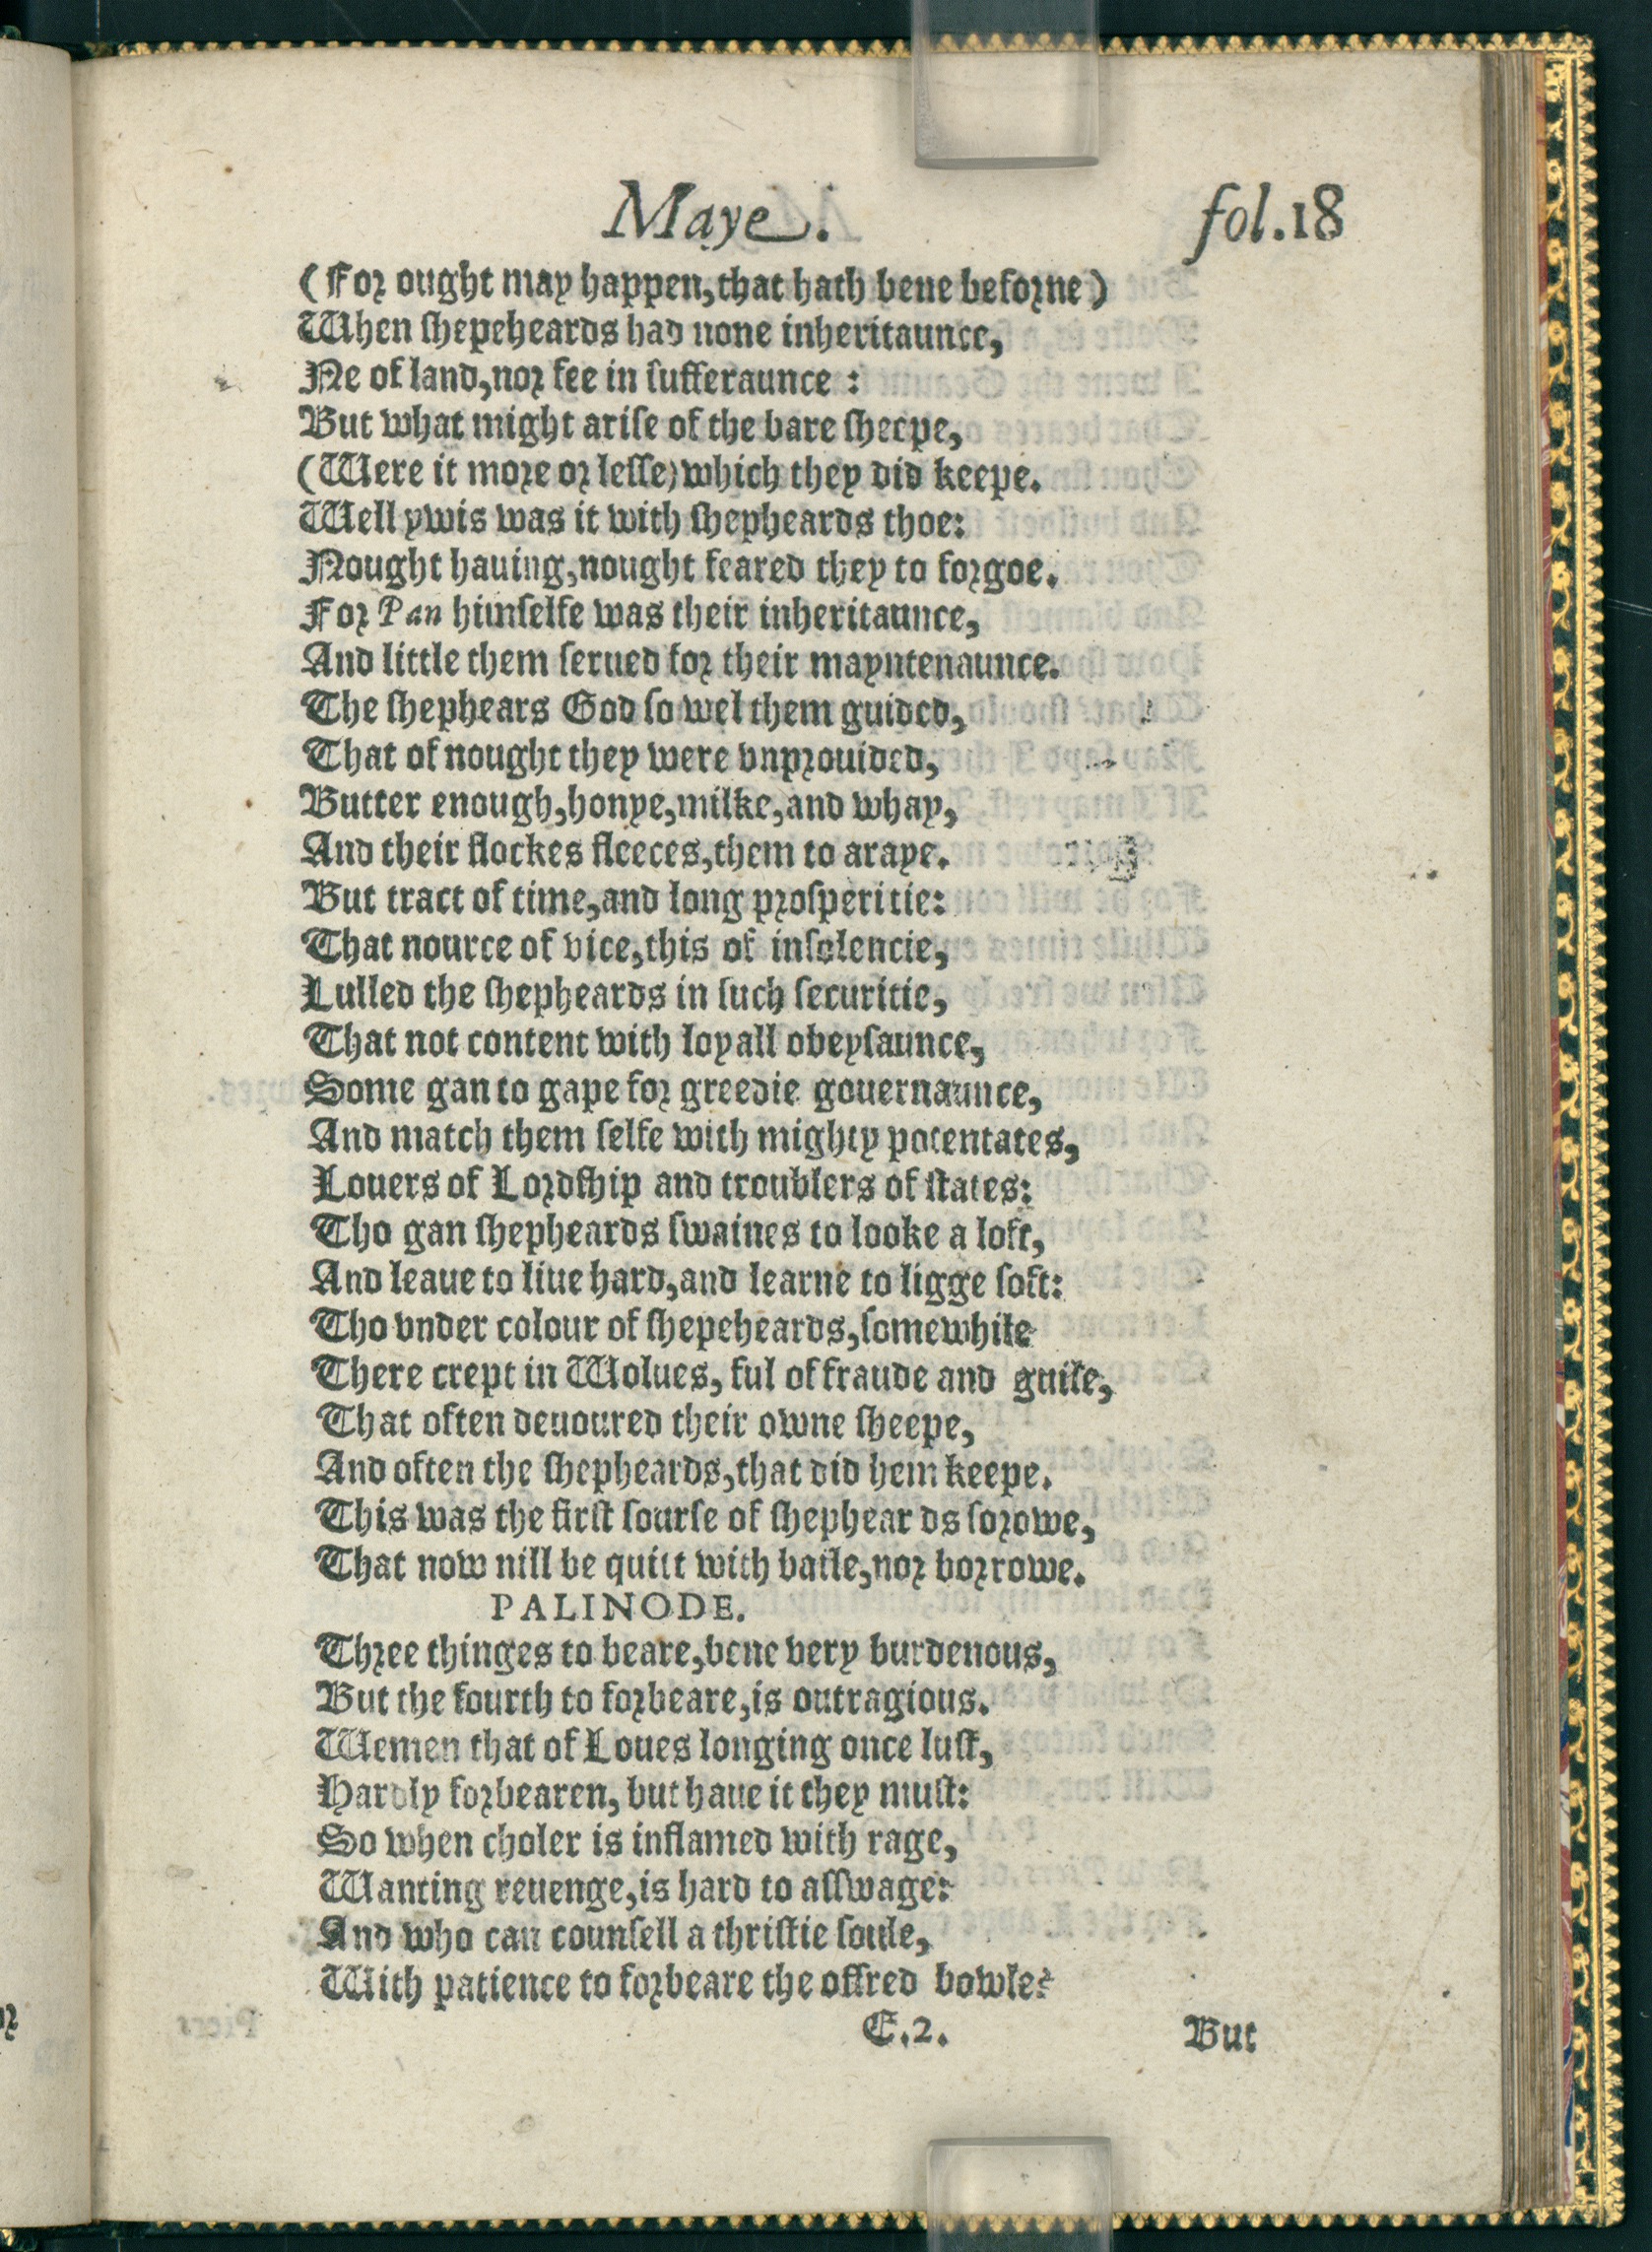 Maye. fol.18
(For ought may happen, that hath bene beforne)
When shepeheards had none inheritaunce,
Ne of land, nor fee in sufferaunce :
But what might arise of the bare sheepe,
(Were it more or lesse) which they did keepe.
Well ywis was it with shepheards thoe:
Nought hauing, nought feared they to forgoe.
For Pan himselfe was their inheritaunce,
And little them serued for their mayntenaunce.
The shephears God so wel them guided,
That of nought they were vnprouided,
Butter enough, honye, milke, and whay,
And their flockes fleeces, them to araye.
But tract of time, and long prosperitie:
That nource of vice, this of insolencie,
Lulled the shepheards in such securitie,
That not content with loyall obeysaunce,
Some gan to gape for greedie gouernaunce,
And match them selfe with mighty potentates,
Louers of Lordship and troublers of states:
Tho gan shepheards swaines to looke a loft,
And leaue to liue hard, and learne to ligge soft:
Tho vnder colour of shepeheards, somewhile
There crept in Wolues, ful of fraude and guile,
That often deuoured their owne sheepe,
And often the shepheards, that did hem keepe.
This was the first sourse of shephear ds sorowe,
That now nill be quitt with baile, nor borrowe.
PALINODE.
Three thinges to beare, bene very burdenous,
But the fourth to forbeare, is outragious.
Wemen that of Loues longing once lust,
Hardly forbearen, but haue it they must:
So when choler is inflamed with rage,
Wanting reuenge, is hard to asswage:
And who can counsell a thristie soule,
With patience to forbeare the offred bowle?
E.2. But